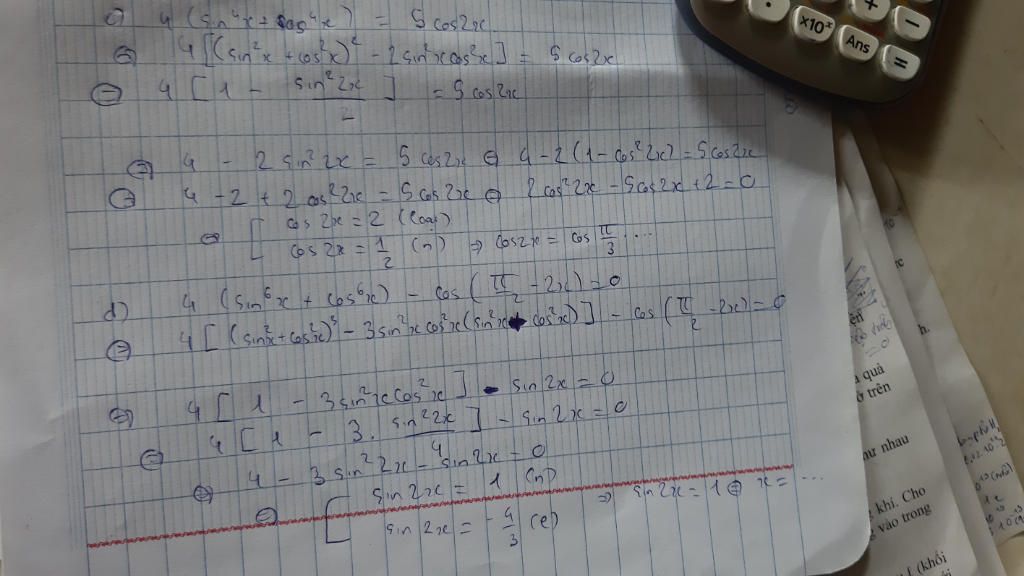 c) 4 (sin⁴x + cos⁴x) = 5 cos2x
⇔ 4[(sin²x + cos²x)² - 2sin²xcos²x] = 5 cos2x
⇔ 4 [ 1 - sin²2x/2 ] = 5 cos2x
⇔ 4 - 2 sin²2x = 5 cos2x ⇔ 4 - 2(1 - cos²2x) = 5cos2x
⇔ 4 - 2 + 2cos²2x = 5cos2x ⇔ 2cos²2x - 5cos2x + 2 = 0
⇔ [ cos 2x = 2 (loại)
cos 2x = 1/2 (n) ⇒ cos2x = cos π/3 ....
d) 4 (sin⁶x + cos⁶x) - cos (π/2 - 2x) = 0
⇔ 4[(sin²x + cos²x)³ - 3sin²xcos²x(sin²x + cos²x)] - cos (π/2 - 2x) = 0
⇔ 4 [ 1 - 3sin²xcos²x ] - sin 2x = 0
⇔ 4 [ 1 - 3. sin²2x/4 ] - sin 2x = 0
⇔ 4 - 3sin²2x - sin2x = 0
⇔ [ sin 2x = 1 (n) ⇒ sin 2x = 1 ⇔ x = ...
sin 2x = -4/3 (l)
×10ˣ
Ans
+
-
=
quả
ở trên
như nhau
khí. Cho
vào trong
(khối